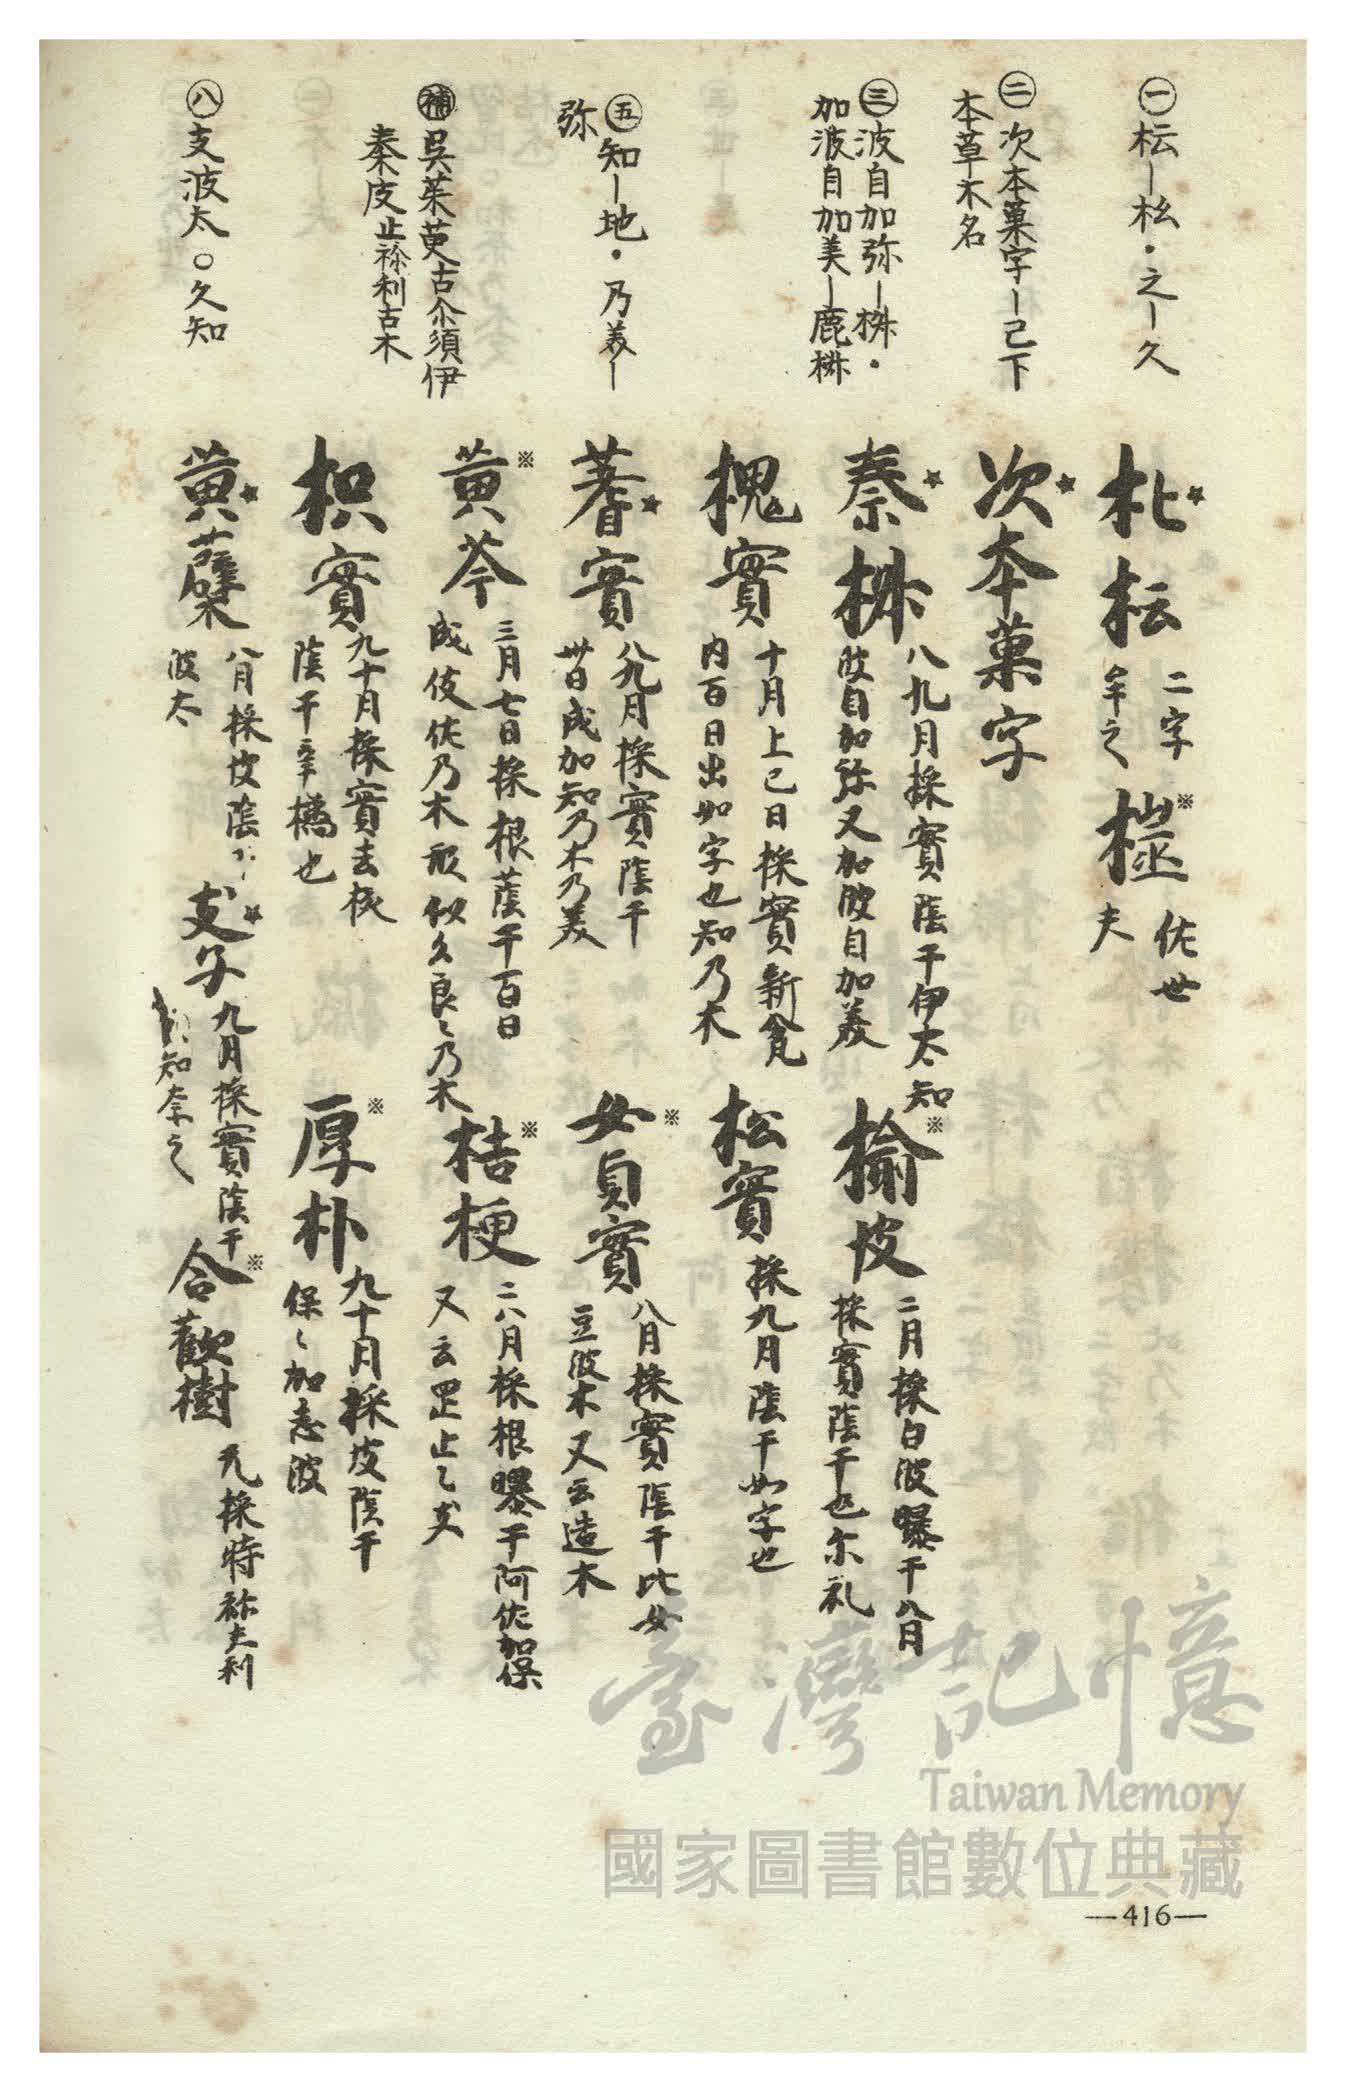 ㊀枟—枀・之—久
㊁次本菓字—己下
本草木名
㊂波自加弥—椒・
加波自加美—鹿椒
㊄知—地・乃美—
弥
㊝吳茱萸古尒須伊
秦皮止祢利古木
㊇支波太〇久知
枇枟 二字 牟之 樒 佐世 夫
次本菓字
秦椒 八九月採實陰干伊太知
波自加弥又加波自加美
榆皮 二月採白波曝干八月
採實陰干也尒礼
槐實 十月上巳日採實新𠔥
內百日出如字也知乃木
松實 採九月陰干如字也
蓍實 八九月採實陰干
卅日成加知乃木乃美
女貞實 八月採實陰干比女
豆波木又云造木
黃芩 三月七日採根蔭干百日
成伎佐乃木祢似久良〻乃木
桔梗 二八月採根曝干阿佐加保
又云罡止〻支
枳實 九十月採實去核
陰干辛橘也
厚朴 九十月採皮陰干
保〻加志波
黃蘗 八月採皮陰干
波太
支子 九月採實陰干
知奈之
合歡樹 九採特祢夫利
臺灣記憶
Taiwan Memory
國家圖書館數位典藏
—416—